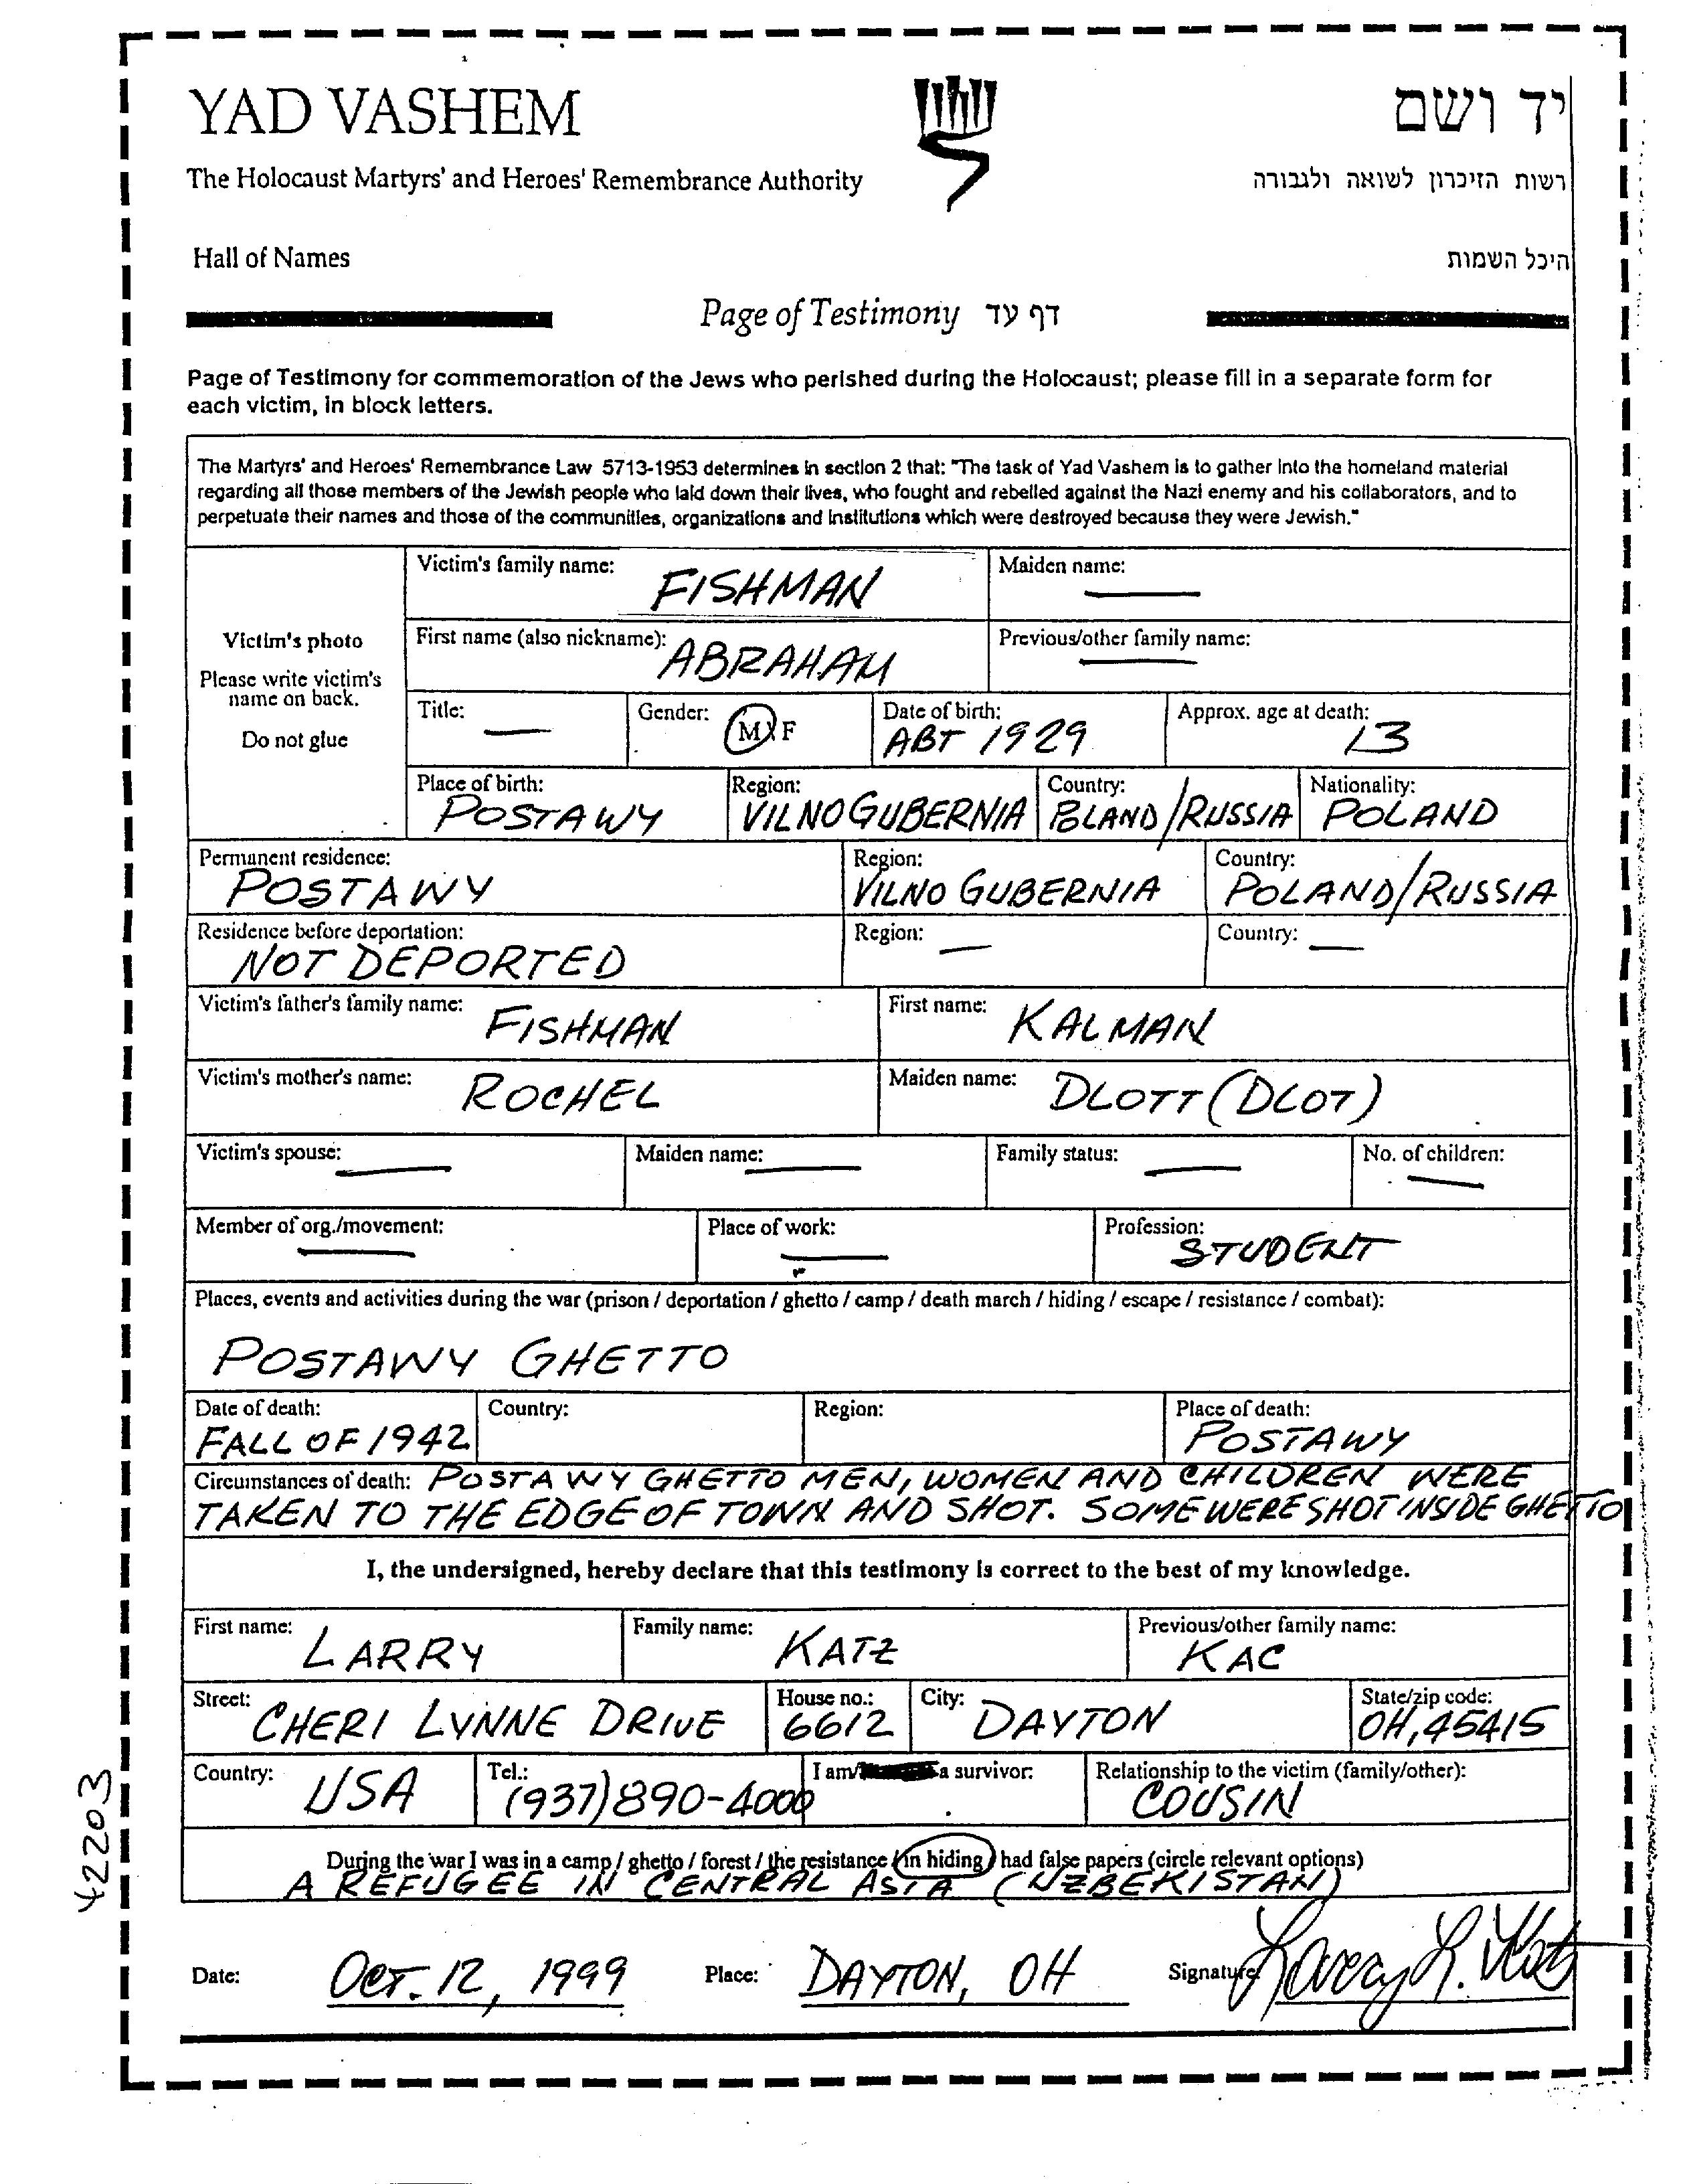 YAD VASHEM
יד ושם
The Holocaust Martyrs' and Heroes' Remembrance Authority
רשות הזיכרון לשואה ולגבורה
Hall of Names
היכל השמות
Page of Testimony דף עד
Page of Testimony for commemoration of the Jews who perished during the Holocaust; please fill in a separate form for
each victim, in block letters.
The Martyrs' and Heroes' Remembrance Law 5713-1953 determines in section 2 that: "The task of Yad Vashem is to gather into the homeland material
regarding all those members of the Jewish people who laid down their lives, who fought and rebelled against the Nazi enemy and his collaborators, and to
perpetuate their names and those of the communities, organizations and institutions which were destroyed because they were Jewish."
Victim's photo
Please write victim's
name on back.
Do not glue
Victim's family name: FISHMAN
Maiden name: —
First name (also nickname): ABRAHAM
Previous/other family name: —
Title: —
Gender: M / F
Date of birth: ABT 1929
Approx. age at death: 13
Place of birth: POSTAWY
Region: VILNO GUBERNIA
Country: POLAND/RUSSIA
Nationality: POLAND
Permanent residence: POSTAWY
Region: VILNO GUBERNIA
Country: POLAND/RUSSIA
Residence before deportation: NOT DEPORTED
Region: —
Country: —
Victim's father's family name: FISHMAN
First name: KALMAN
Victim's mother's name: ROCHEL
Maiden name: DLOTT (DLOT)
Victim's spouse: —
Maiden name: —
Family status: —
No. of children: —
Member of org./movement: —
Place of work: —
Profession: STUDENT
Places, events and activities during the war (prison / deportation / ghetto / camp / death march / hiding / escape / resistance / combat):
POSTAWY GHETTO
Date of death: FALL OF 1942
Country:
Region:
Place of death: POSTAWY
Circumstances of death: POSTAWY GHETTO MEN, WOMEN AND CHILDREN WERE
TAKEN TO THE EDGE OF TOWN AND SHOT. SOME WERE SHOT INSIDE GHETTO
I, the undersigned, hereby declare that this testimony is correct to the best of my knowledge.
First name: LARRY
Family name: KATZ
Previous/other family name: KAC
Street: CHERI LYNNE DRIVE
House no.: 6612
City: DAYTON
State/zip code: OH, 45415
Country: USA
Tel.: (937) 890-4000
I am/ a survivor:
Relationship to the victim (family/other): COUSIN
During the war I was in a camp / ghetto / forest / the resistance / in hiding / had false papers (circle relevant options)
A REFUGEE IN CENTRAL ASIA (UZBEKISTAN)
Date: OCT. 12, 1999
Place: DAYTON, OH
Signature: Larry L. Katz
42203